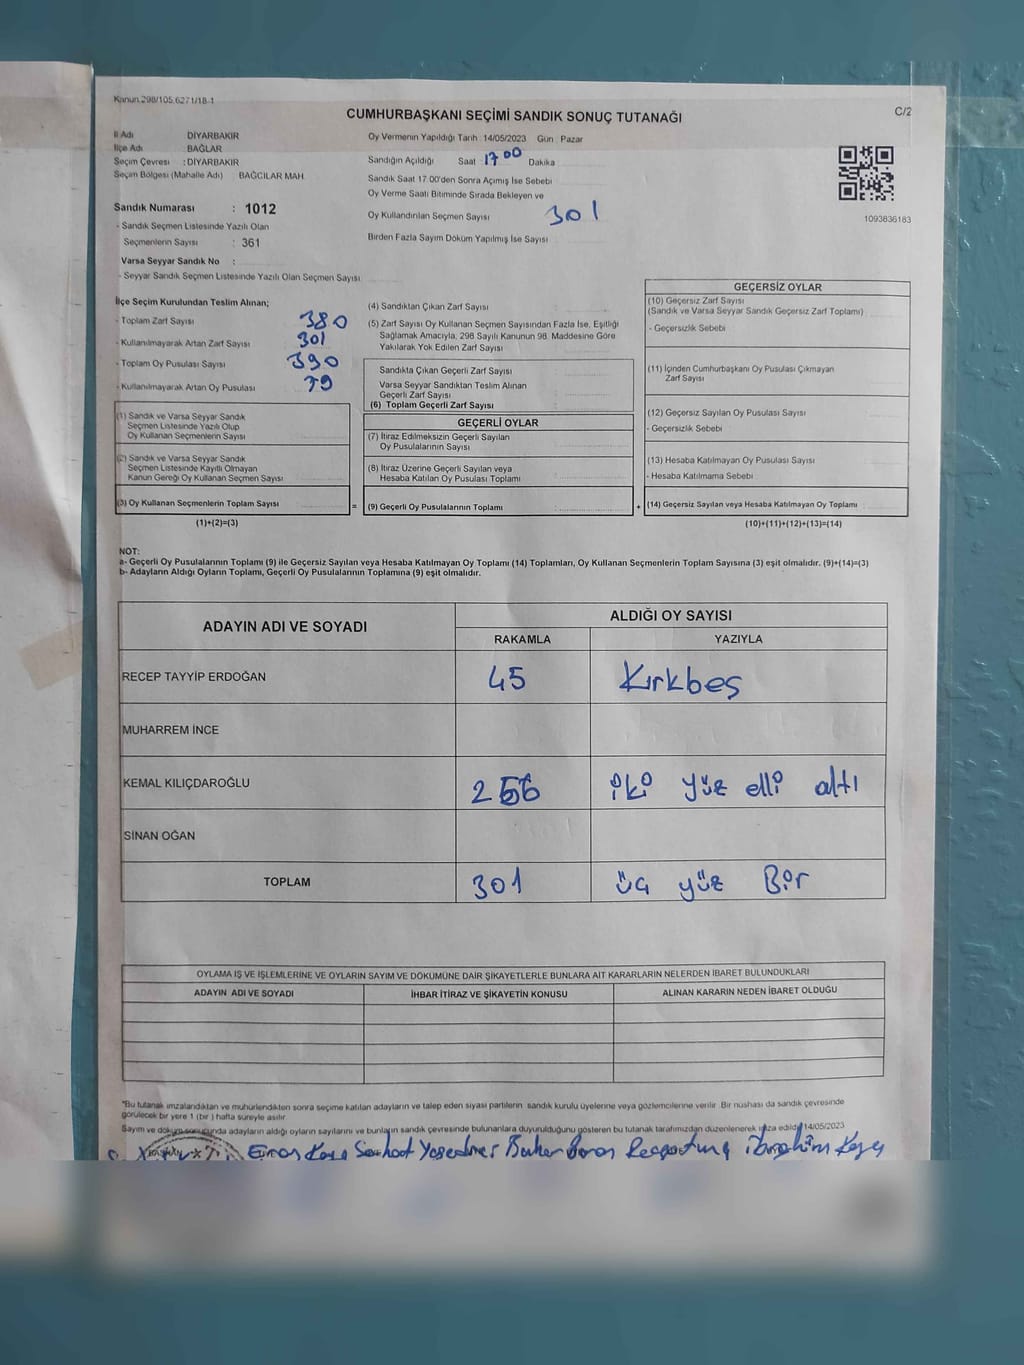 Kanun.298/105.6271/18-1
CUMHURBAŞKANI SEÇİMİ SANDIK SONUÇ TUTANAĞI
C/2
İl Adı DİYARBAKIR
İlçe Adı BAĞLAR
Seçim Çevresi : DİYARBAKIR
Seçim Bölgesi (Mahalle Adı) BAĞCILAR MAH.
Sandık Numarası : 1012
- Sandık Seçmen Listesinde Yazılı Olan
Seçmenlerin Sayısı : 361
Varsa Seyyar Sandık No :
- Seyyar Sandık Seçmen Listesinde Yazılı Olan Seçmen Sayısı
Oy Vermenin Yapıldığı Tarih 14/05/2023 Gün Pazar
Sandığın Açıldığı Saat 17 00 Dakika
Sandık Saat 17.00'den Sonra Açımış İse Sebebi
Oy Verme Saati Bitiminde Sırada Bekleyen ve
Oy Kullandırılan Seçmen Sayısı 301
Birden Fazla Sayım Döküm Yapılmış İse Sayısı
1093836183
İlçe Seçim Kurulundan Teslim Alınan;
- Toplam Zarf Sayısı 380
- Kullanılmayarak Artan Zarf Sayısı 301
- Toplam Oy Pusulası Sayısı 390
- Kullanılmayarak Artan Oy Pusulası 79
(1) Sandık ve Varsa Seyyar Sandık
Seçmen Listesinde Yazılı Olup
Oy Kullanan Seçmenlerin Sayısı
(2) Sandık ve Varsa Seyyar Sandık
Seçmen Listesinde Kayıtlı Olmayan
Kanun Gereği Oy Kullanan Seçmen Sayısı
(3) Oy Kullanan Seçmenlerin Toplam Sayısı
(1)+(2)=(3)
(4) Sandıktan Çıkan Zarf Sayısı
(5) Zarf Sayısı Oy Kullanan Seçmen Sayısından Fazla İse, Eşitliği
Sağlamak Amacıyla, 298 Sayılı Kanunun 98. Maddesine Göre
Yakılarak Yok Edilen Zarf Sayısı
Sandıkta Çıkan Geçerli Zarf Sayısı
Varsa Seyyar Sandıktan Teslim Alınan
Geçerli Zarf Sayısı
(6) Toplam Geçerli Zarf Sayısı
GEÇERLİ OYLAR
(7) İtiraz Edilmeksizin Geçerli Sayılan
Oy Pusulalarının Sayısı
(8) İtiraz Üzerine Geçerli Sayılan veya
Hesaba Katılan Oy Pusulası Toplamı
= (9) Geçerli Oy Pusulalarının Toplamı
GEÇERSİZ OYLAR
(10) Geçersiz Zarf Sayısı
(Sandık ve Varsa Seyyar Sandık Geçersiz Zarf Toplamı)
- Geçersizlik Sebebi
(11) İçinden Cumhurbaşkanı Oy Pusulası Çıkmayan
Zarf Sayısı
(12) Geçersiz Sayılan Oy Pusulası Sayısı
- Geçersizlik Sebebi
(13) Hesaba Katılmayan Oy Pusulası Sayısı
- Hesaba Katılmama Sebebi
+ (14) Geçersiz Sayılan veya Hesaba Katılmayan Oy Toplamı
(10)+(11)+(12)+(13)=(14)
NOT:
a- Geçerli Oy Pusulalarının Toplamı (9) ile Geçersiz Sayılan veya Hesaba Katılmayan Oy Toplamı (14) Toplamları, Oy Kullanan Seçmenlerin Toplam Sayısına (3) eşit olmalıdır. (9)+(14)=(3)
b- Adayların Aldığı Oyların Toplamı, Geçerli Oy Pusulalarının Toplamına (9) eşit olmalıdır.
ADAYIN ADI VE SOYADI ALDIĞI OY SAYISI
RAKAMLA YAZIYLA
RECEP TAYYİP ERDOĞAN 45 Kırkbeş
MUHARREM İNCE
KEMAL KILIÇDAROĞLU 256 iki yüz elli altı
SİNAN OĞAN
TOPLAM 301 üç yüz Bir
OYLAMA İŞ VE İŞLEMLERİNE VE OYLARIN SAYIM VE DÖKÜMÜNE DAİR ŞİKAYETLERLE BUNLARA AİT KARARLARIN NELERDEN İBARET BULUNDUKLARI
ADAYIN ADI VE SOYADI İHBAR İTİRAZ VE ŞİKAYETİN KONUSU ALINAN KARARIN NEDEN İBARET OLDUĞU
"Bu tutanak imzalandıktan ve mühürlendikten sonra seçime katılan adayların ve talep eden siyasi partilerin sandık kurulu üyelerine veya gözlemcilerine verilir. Bir nüshası da sandık çevresinde
görülecek bir yere 1 (bir) hafta süreyle asılır.
Sayım ve döküm sonucunda adayların aldığı oyların sayılarını ve bunların sandık çevresinde bulunanlara duyurulduğunu gösteren bu tutanak tarafımızdan düzenlenerek imza edildi 14/05/2023
Kaya Baran İbrahim Kaya